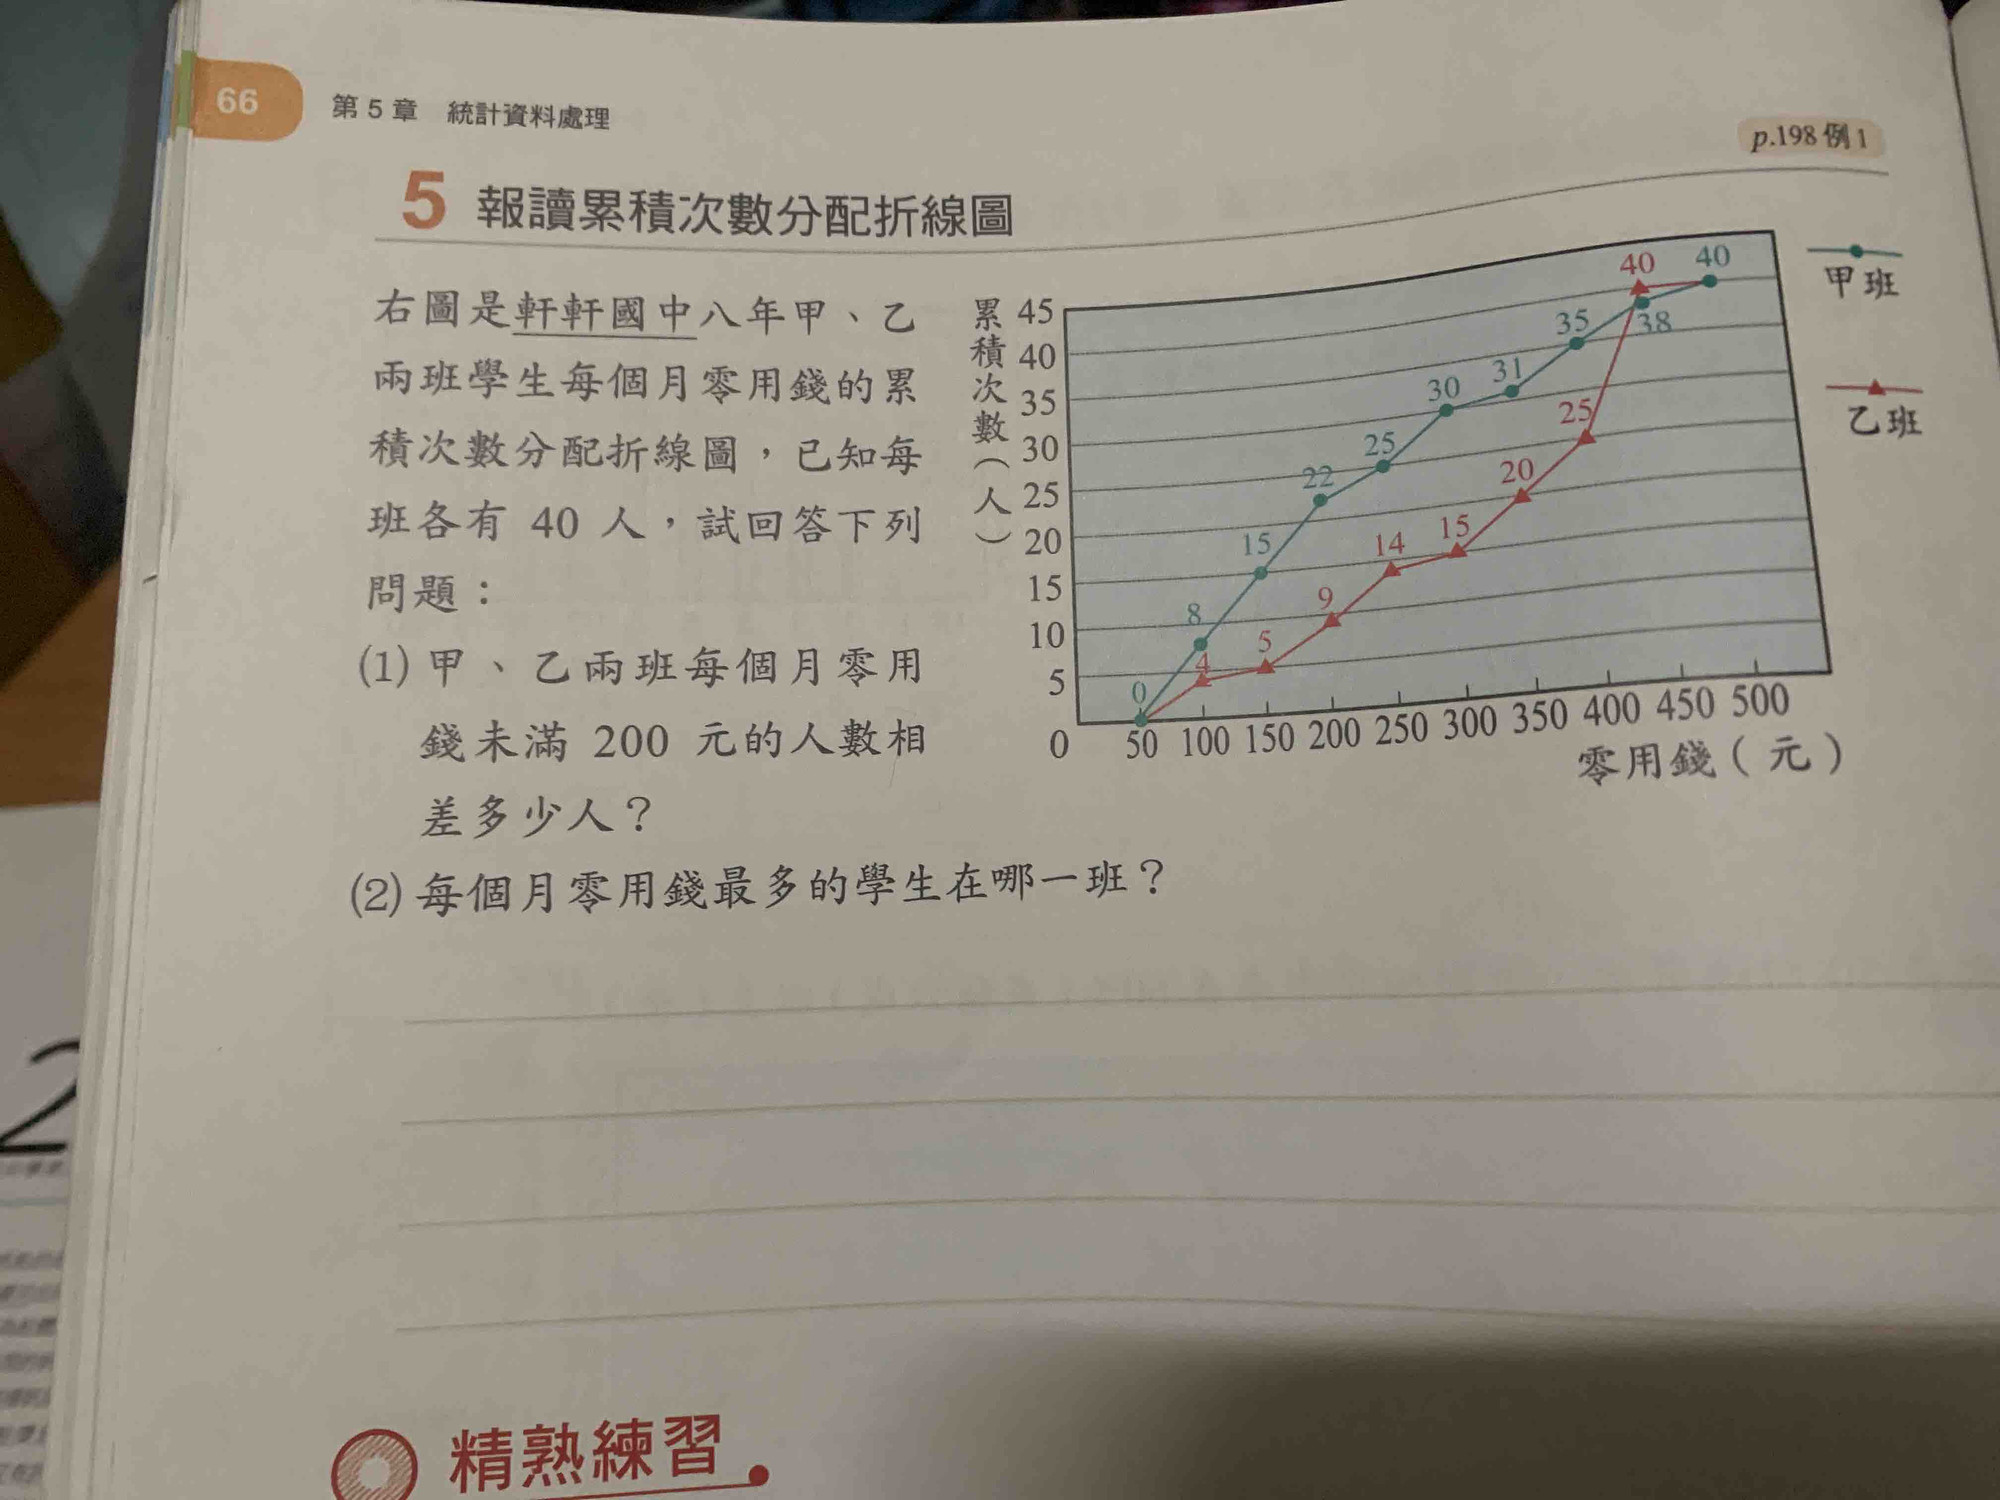 66
第 5 章　統計資料處理
p.198 例 1
5 報讀累積次數分配折線圖
右圖是軒軒國中八年甲、乙
兩班學生每個月零用錢的累
積次數分配折線圖，已知每
班各有 40 人，試回答下列
問題：
(1) 甲、乙兩班每個月零用
錢未滿 200 元的人數相
差多少人？
(2) 每個月零用錢最多的學生在哪一班？
累積次數（人）
45
40
35
30
25
20
15
10
5
0
50 100 150 200 250 300 350 400 450 500
零用錢（元）
0 8 15 22 25 30 31 35 38 40
4 5 9 14 15 20 25 40
甲班
乙班
精熟練習
2